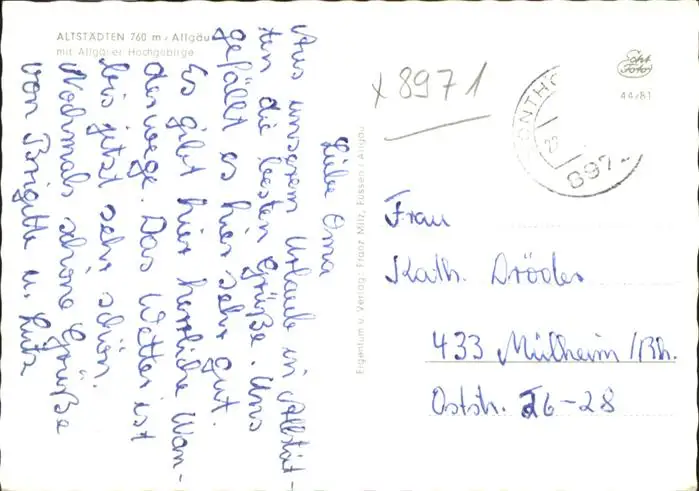 ALTSTÄDTEN 760 m / Allgäu
mit Allgäuer Hochgebirge
Liebe Oma
Aus unserem Urlaub in Altstät-
ten die besten Grüße. Uns
gefällt es hier sehr gut.
Es gibt hier herrliche Wan-
derwege. Das Wetter ist
bis jetzt sehr schön.
Nochmals schöne Grüße
von Brigitte u. Lutz
Eigentum u. Verlag: Franz Milz, Füssen / Allgäu
x 8971
Echt
Foto
44/81
ONTHO
23
897
Frau
Kath. Dröder
433 Mülheim/Rh.
Oststr. 26-28